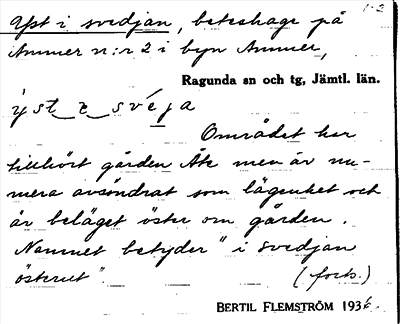 Yst i svedjan, beteshage på
Ammer n:r 2 i byn Ammer,
1-2
Ragunda sn och tg, Jämtl. län.
ẏst_e_svéja
Området har
tillhört gården Åke men är nu-
mera avsöndrat som lägenhet och
är beläget öster om gården.
Namnet betyder "i svedjan
österut". (forts.)
BERTIL FLEMSTRÖM 1936.